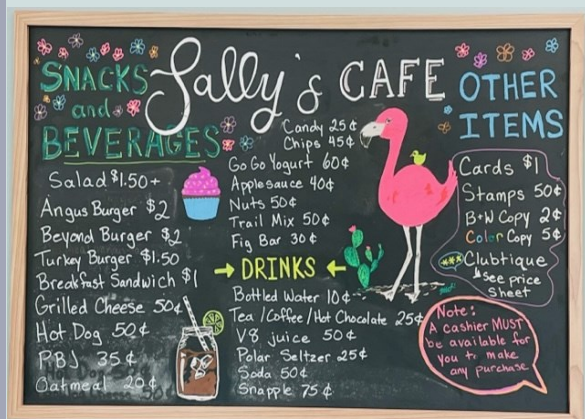 Sally's CAFE
SNACKS
and
BEVERAGES
Salad $1.50+
Angus Burger $2
Beyond Burger $2
Turkey Burger $1.50
Breakfast Sandwich $1
Grilled Cheese 50¢
Hot Dog 50¢
PBJ 35¢
Oatmeal 20¢
Candy 25¢
Chips 45¢
GoGo Yogurt 60¢
Applesauce 40¢
Nuts 50¢
Trail Mix 50¢
Fig Bar 30¢
→ DRINKS ←
Bottled Water 10¢
Tea/Coffee/Hot Chocolate 25¢
V8 juice 50¢
Polar Seltzer 25¢
Soda 50¢
Snapple 75¢
OTHER
ITEMS
Cards $1
Stamps 50¢
B+W Copy 2¢
Color Copy 5¢
*** Clubtique
↳ See price
Sheet
Note:
A cashier MUST
be available for
you to make
any purchase